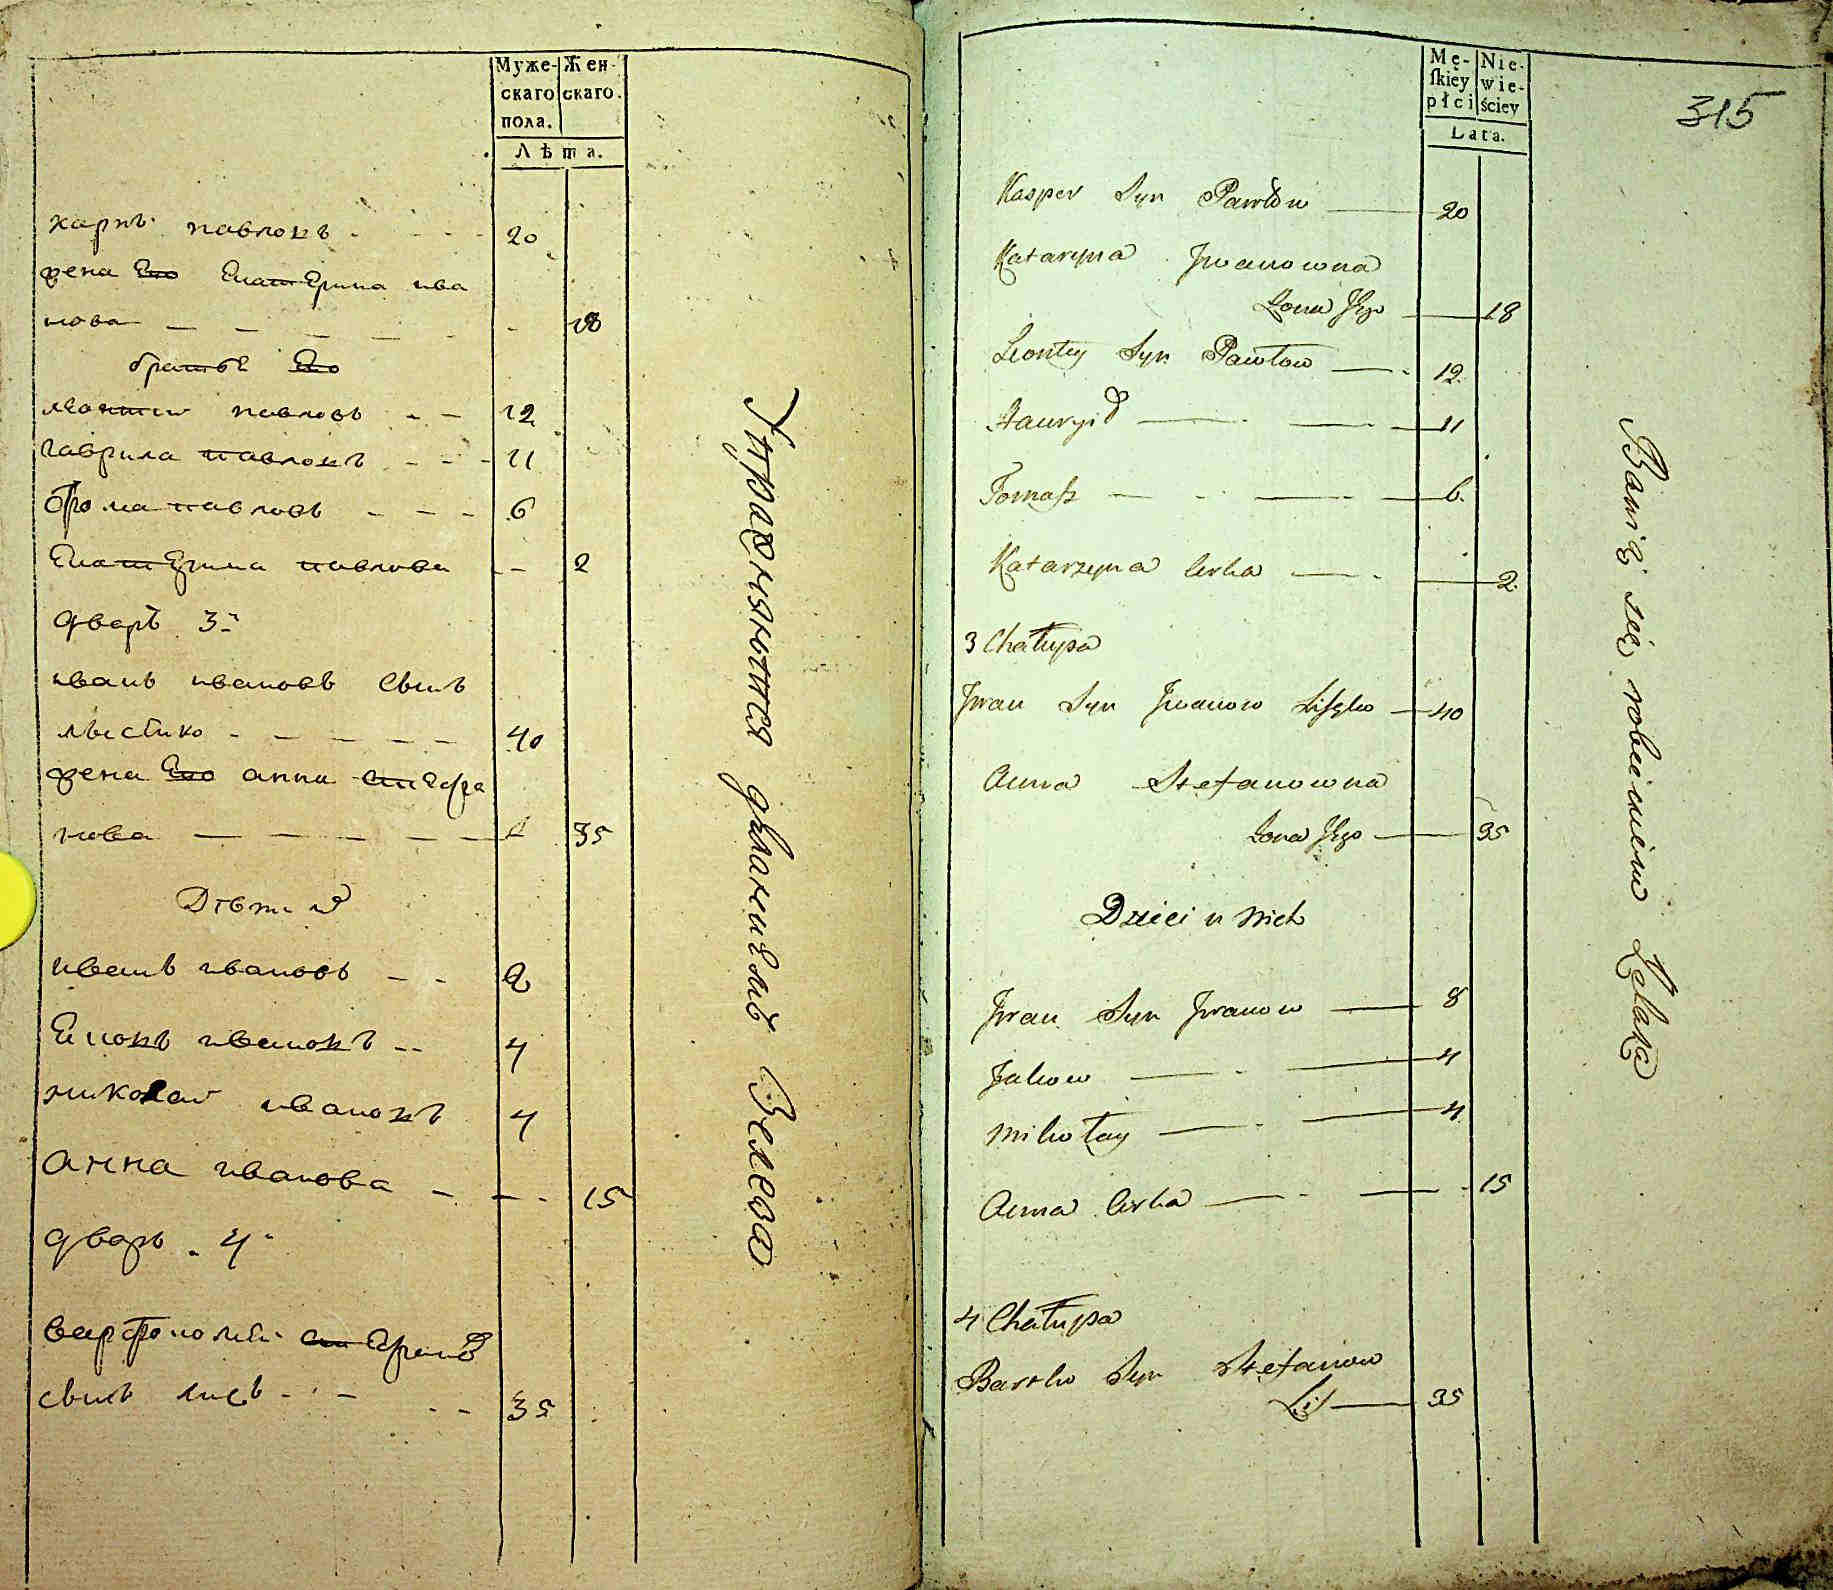 Муже-
скаго
пола.
Жен-
скаго.
Лѣта.
карпъ павловъ 20
жена Его Екатерина ива
нова 18
братьѣ Его
леонтии павловъ 12
гаврила павловъ 11
фома павловъ 6
Екатерина павлова 2
дворъ 3й
иванъ ивановъ сынъ
40
жена Его анна степа
нова 35
Дѣти
иванъ ивановъ 8
ивановъ 4
николаи ивановъ 4
анна иванова 15
дворъ 4й
варфоломеи степанов
сынъ лисъ 35
Упражняются деланиемъ Зелеза
315
Mę-
ſkiey
płci
Nie-
wie-
ściey
Lata.
Kasper Syn Pawłow 20
Kataryna Jwanowna
Żona Jego 18
Leontey Syn Pawłow 12
Hawryił 11
Tomaſz 6
Katarzyna Corka 2
3 Chałupa
Jwan Syn Jwanow Liſzko 40
Anna Stefanowna
Żona Jego 35
Dzieci u nich
Jwan Syn Jwanow 8
Jakow 4
Mikołay 4
Anna Corka 15
4 Chałupa
Bartko Syn Stefanow
Lis 35
Bawią się robieniem Żelaza